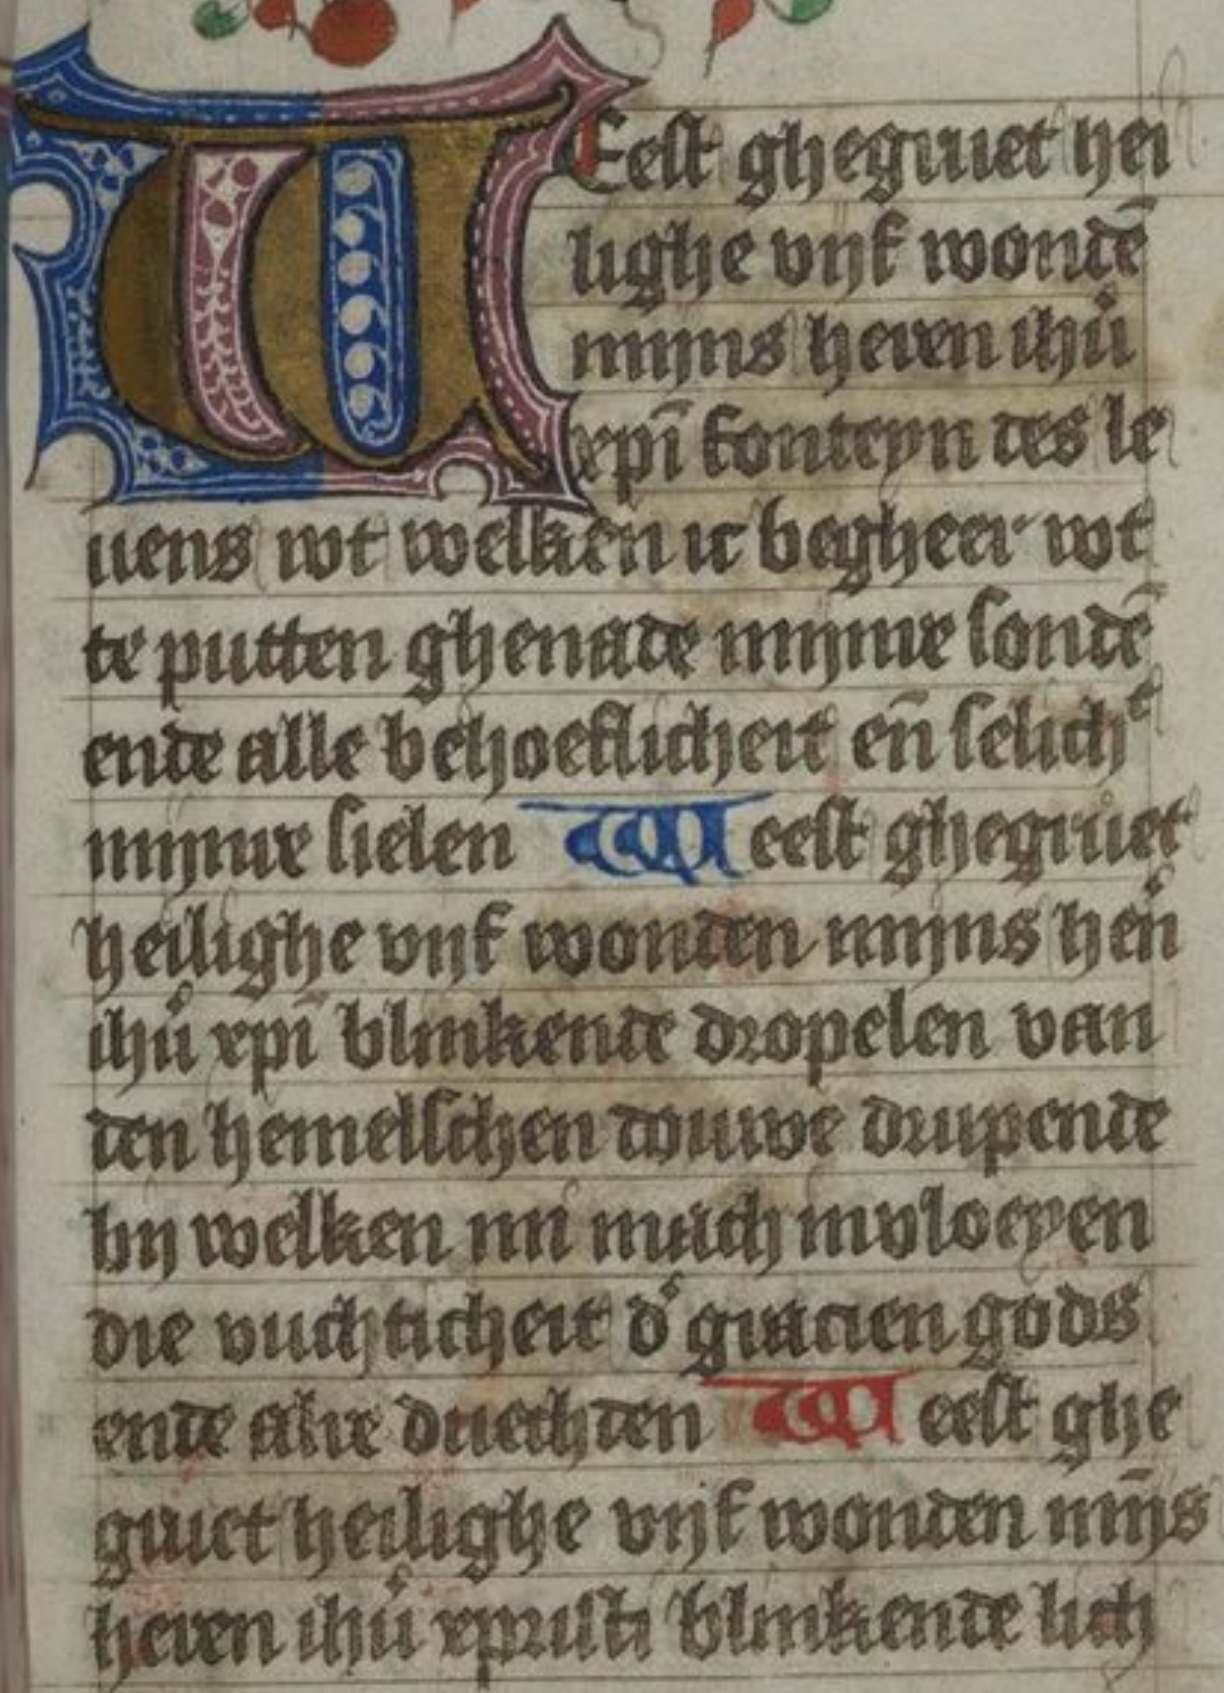 WEest ghegruet hei
lighe vijf wondē
mijns heren ihū
xpī fonteyn des le
uens wt welken ic begheer wt
te putten ghenade mijnre sondē
ende alle behoeflicheit eñ selichᵗ
mijnre sielen Weest ghegruet
heilighe vijf wonden mijns heñ
ihū xpī blinkende dropelen van
den hemelschen douwe drupende
bij welken mi mach invloeyen
die vuchticheit dᵉ gracien gods
ende alre duechden Weest ghe
gruet heilighe vijf wonden mījs
heren ihū xpristi blinkende lich